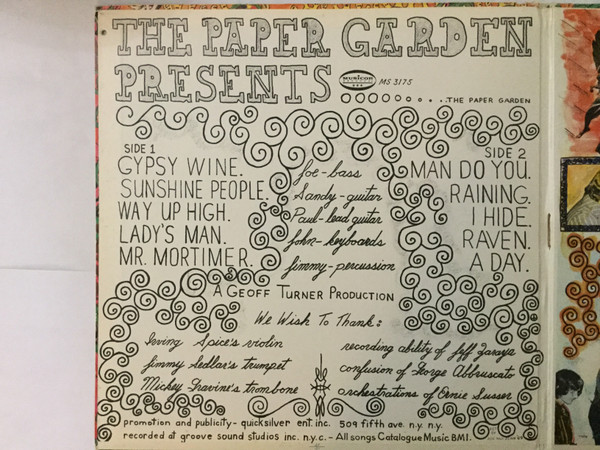 THE PAPER GARDEN
PRESENTS
MUSICOR
MS 3175
...THE PAPER GARDEN
SIDE 1
GYPSY WINE.
SUNSHINE PEOPLE
WAY UP HIGH.
LADY'S MAN.
MR. MORTIMER.
Joe-bass
Sandy-guitar
Paul-lead guitar
John-keyboards
Jimmy-percussion
SIDE 2
MAN DO YOU.
RAINING.
I HIDE.
RAVEN.
A DAY.
A GEOFF TURNER PRODUCTION
We Wish To Thank:
Irving Spice's violin
Jimmy Sedlar's trumpet
Mickey Gravine's trombone
recording ability of Jeff Zaraya
confusion of George Abbruscato
orchestrations of Ernie Susser
promotion and publicity- quicksilver ent. inc. 509 fifth ave. n.y. n.y.
recorded at groove sound studios inc. n.y.c. - All songs Catalogue Music BMI.